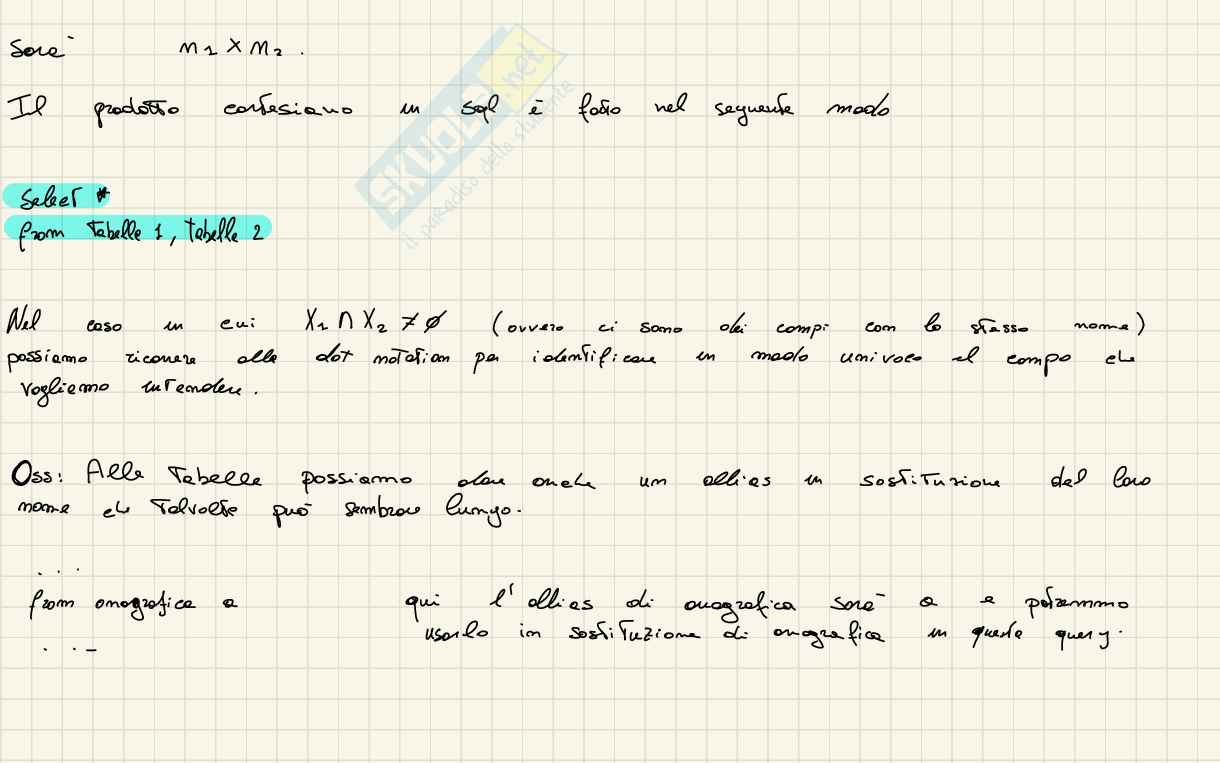 Sarà n1 x n2.
Il prodotto cartesiano in sql è fatto nel seguente modo
Select *
from Tabella 1, tabella 2
Nel caso in cui X1 ∩ X2 ≠ ∅ (ovvero ci sono dei campi con lo stesso nome)
possiamo ricorrere alla dot notation per identificare in modo univoco il campo che
vogliamo intendere.
Oss: Alle Tabelle possiamo dare anche un allias in sostituzione del loro
nome che talvolta può sembrare lungo.
. . .
from anagrafica a qui l'allias di anagrafica sarà a e potremmo
usarlo in sostituzione di anagrafica in questa query.
. . -
SKUOLA.net
il paradiso dello studente